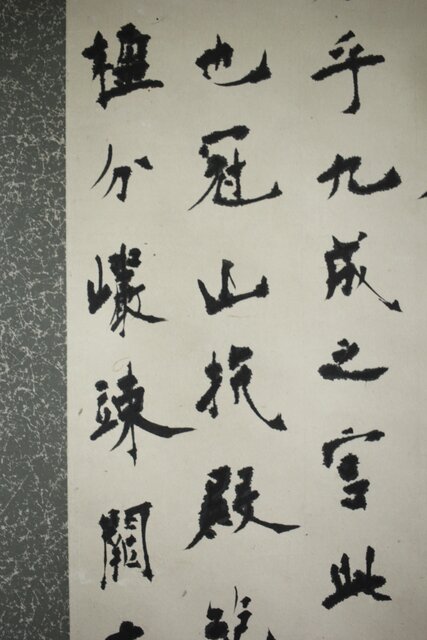 乎九成之宮此
也冠山抗殿
楹分巖竦闕